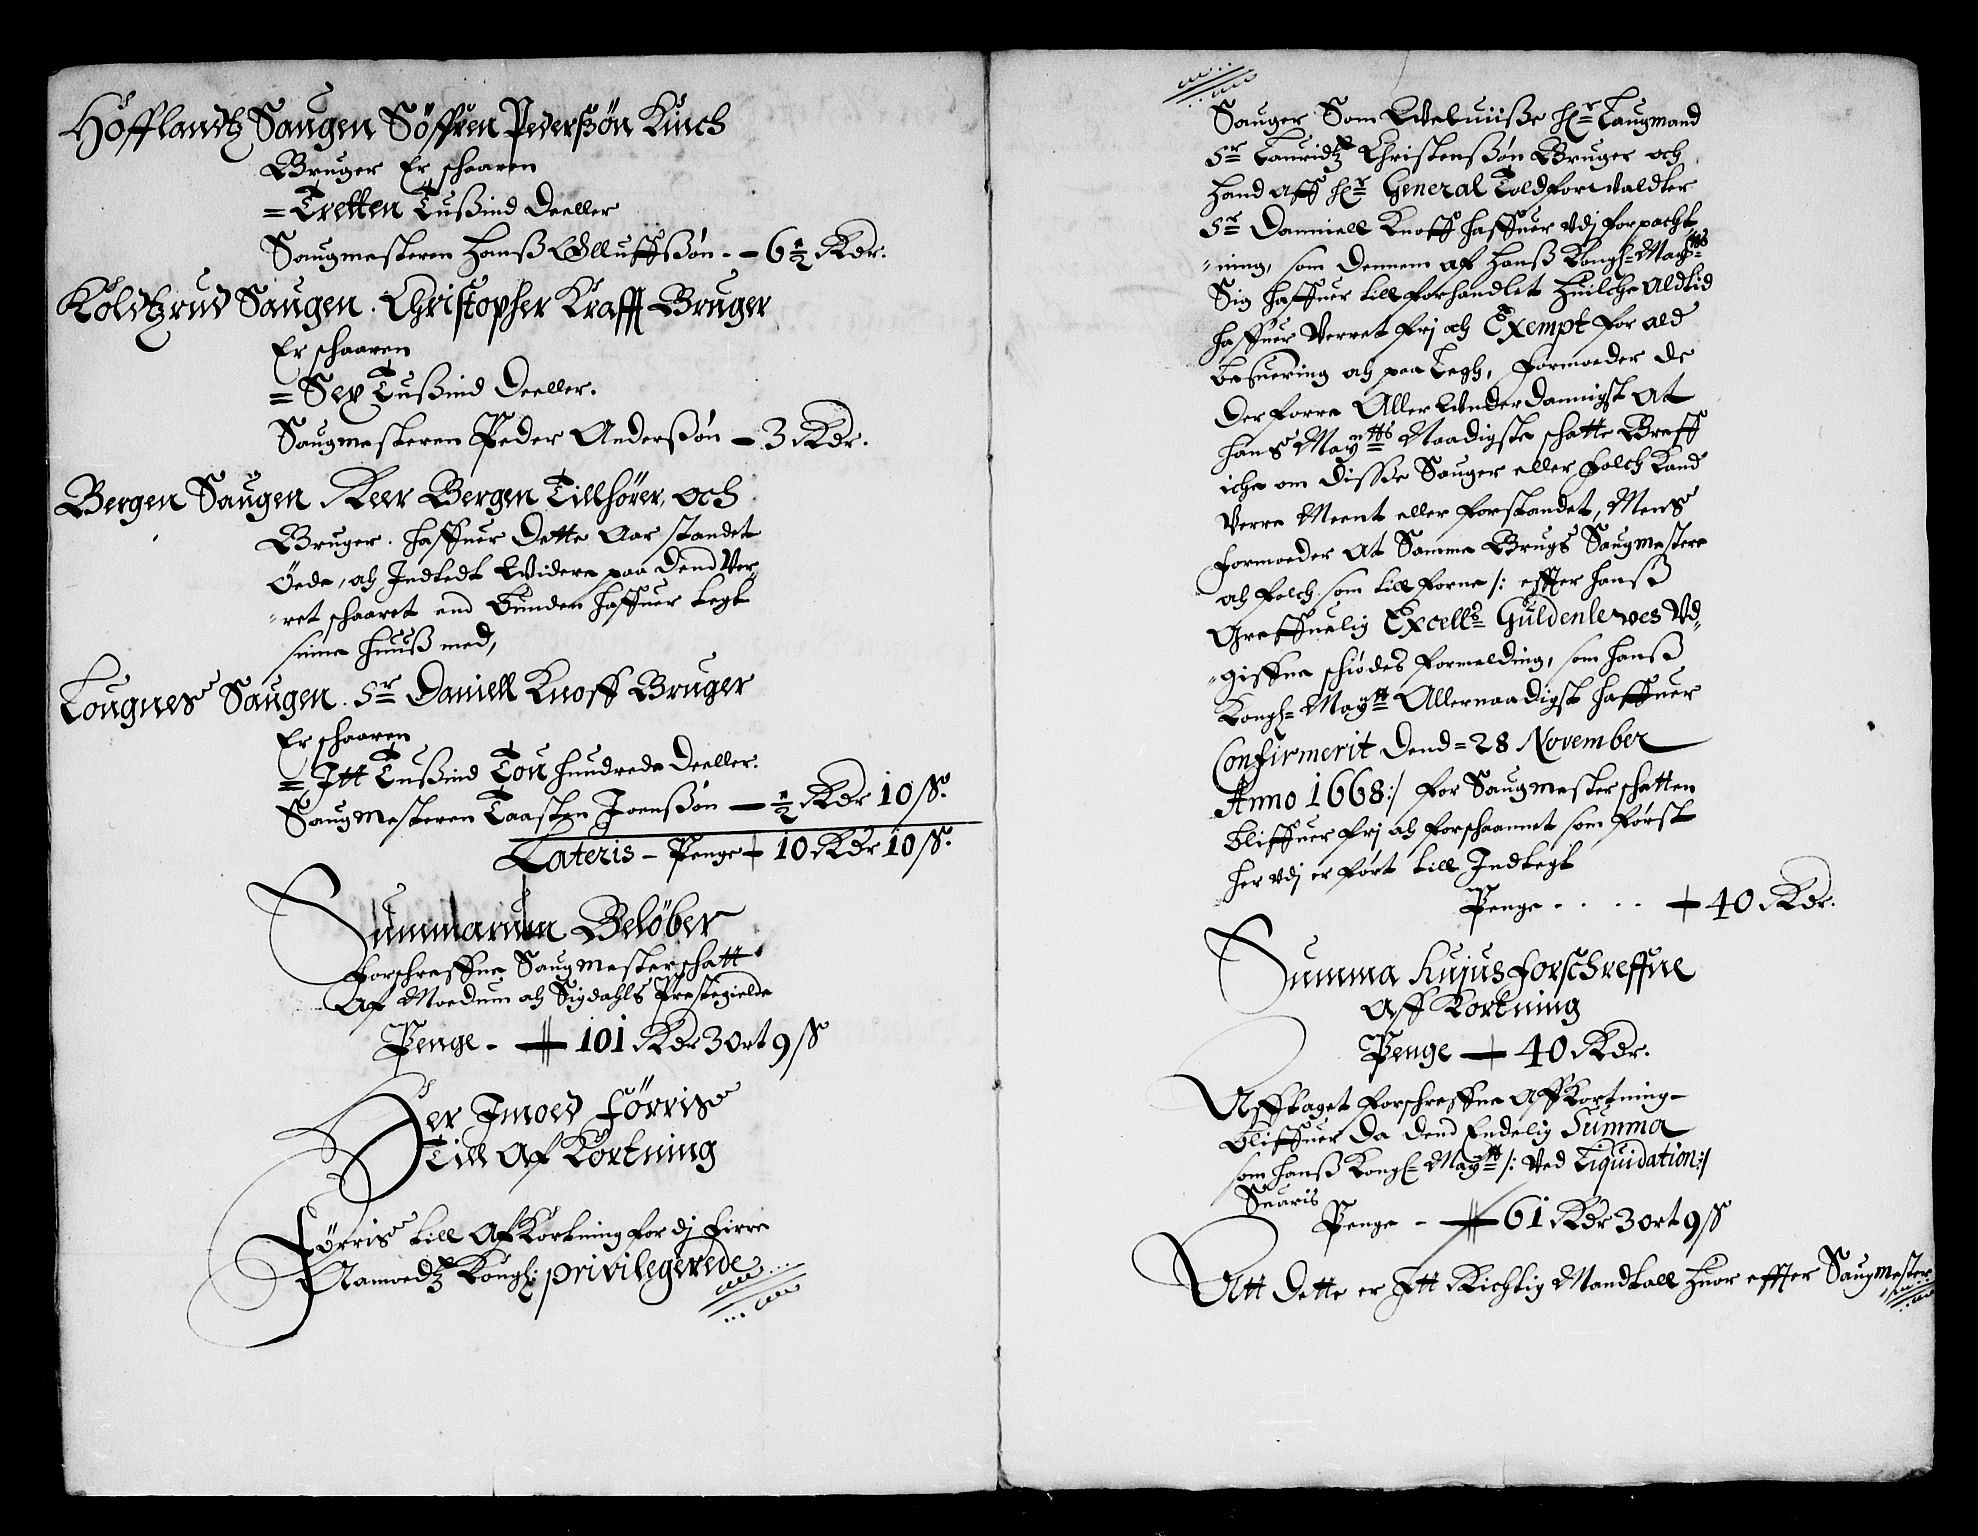 Höfflandtz Saugen Söffren Pederßön Kinch
Bruger Er schaaren
= Tretten Tußind Deeller
Saugmesteren Hanß Olluffßøn - - 6 ½ Rdr.
Koldtzrud Saugen. Christopher Krafft Bruger
Er schaaren
= Sex Tußind Deeller.
Saugmesteren Peder Anderßøn - 3 Rdr.
Bergen Saugen Reer Bergen Tillhörer, och
Bruger. haffuer dette Aar standet
Öede, och Indtedt widere paa dend Ver
ret schaaret end Bunden haffuer legt
sinne huuß med,
Lougnes Saugen. Sr Daniell Knoff Bruger
Er schaaren
= Itt Tußind Tou hundrede Deeller.
Saugmesteren Taasten Joenßøn - ½ Rdr 10 ß.
Lateris - Penge - 10 Rdr 10 ß.
Summarum Belöber
Forschreffne Saugmesterschatt
Af Moedum och Sigdahls Prestegielde
Penge - 101 Rdr 3 ort 9 ß
Her Imoed Förris
Till Af Kortning
Förris till AfKortning for dj Firre
Namoedtz Kongl: privilegerede
Sauger Som Welwiiße Hr Laugmand
Sr Lauridtz Christenßøn Bruger och
Hand aff Hr General Toldforwaldter
Sr Danniell Knoff haffuer vdj forpacht
ning, som dennem af Hanß Kongl: Mayts
Sig haffuer till forhandlet Huilche Aldtid
haffuer Verret frj och Exempt for ald
besuering och paa Legh, formoeder de
der forre Aller Underdannigst At
hans Maytts Naadigste schatte Breff
iche om disse Sauger eller Folch Kand
Verre Meent eller forstandet, Mens
formoeder At Samme Brugs Saugmestere
och folch som till forne /: effter Hanß
Greffuelig Excells Güldenlewes Vd
giffne schiødes formelding, som Hanß
Kongl: Maytt Allernaadigst haffuer
Confirmerit dend = 28 November
Anno 1668:/ for Saugmester schatten
bliffuer frj och forschaannet som först
her vdj er fört till Indtegt
Penge - . . . . 40 Rdr.
Summa hujus forschreffne
Aff Kortning
Penge - 40 Rdr.
Afftaget forschreffne AffKortning
bliffuer da dend Endelig Summa
som Hanß Kongl: Maytt /: Ved Liquidation :/
Suaris
Penge - 61 Rdr 3 ort 9 ß
Att dette er Itt Richtig Mandtall Huor effter Saugmester